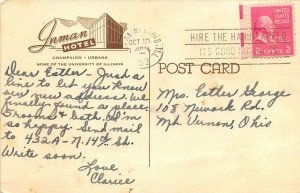 Inman
HOTEL
CHAMPAIGN - URBANA
HOME OF THE UNIVERSITY OF ILLINOIS
OCT 10
HIRE THE
ITS GOOD
UNITED STATES POSTAGE
2 CENTS 2
POST CARD
Dear Esther - Just a
line to let you know
our new address. We
finally found a place,
3 rooms & bath. I'm
so happy. Send mail
to 432A - N. 14th St.
Write soon.
Love
Clarice
Mrs. Esther George
108 Newark Rd.
Mt. Vernon, Ohio